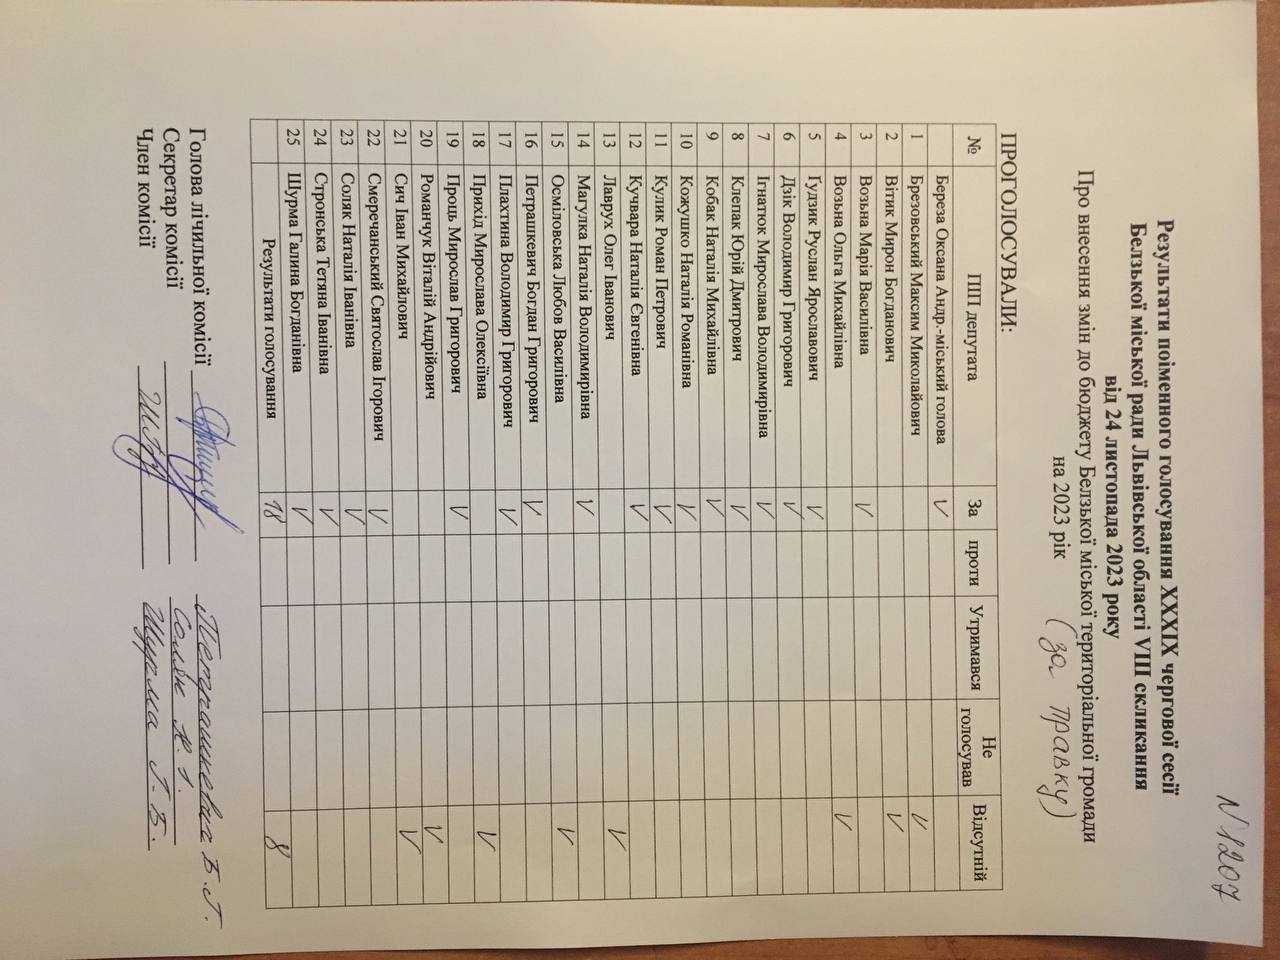 N 1207
Результати поіменного голосування XXXIX чергової сесії
Белзької міської ради Львівської області VIII скликання
від 24 листопада 2023 року
Про внесення змін до бюджету Белзької міської територіальної громади
на 2023 рік (за правку)
ПРОГОЛОСУВАЛИ:
№ ПІП депутата За проти Утримався Не голосував Відсутній
Береза Оксана Андр.-міський голова V
1 Брезовський Максим Миколайович V
2 Вітик Мирон Богданович V
3 Возьна Марія Василівна V
4 Возьна Ольга Михайлівна V
5 Гудзик Руслан Ярославович V
6 Дзік Володимир Григорович V
7 Ігнатюк Мирослава Володимирівна V
8 Клепак Юрій Дмитрович V
9 Кобак Наталія Михайлівна V
10 Кожушко Наталія Романівна V
11 Кулик Роман Петрович V
12 Кучвара Наталія Євгенівна V
13 Лаврух Олег Іванович V
14 Магулка Наталія Володимирівна V
15 Осміловська Любов Василівна V
16 Петрашкевич Богдан Григорович V
17 Плахтина Володимир Григорович V
18 Прихід Мирослава Олексіївна V
19 Проць Мирослав Григорович V
20 Романчук Віталій Андрійович V
21 Сич Іван Михайлович V
22 Смеречанський Святослав Ігорович V
23 Соляк Наталія Іванівна V
24 Стронська Тетяна Іванівна V
25 Шурма Галина Богданівна V
Результати голосування 18 8
Голова лічильної комісії Петрашкевич Б.Г.
Секретар комісії Соляк Н.І.
Член комісії Шурма Г.Б.